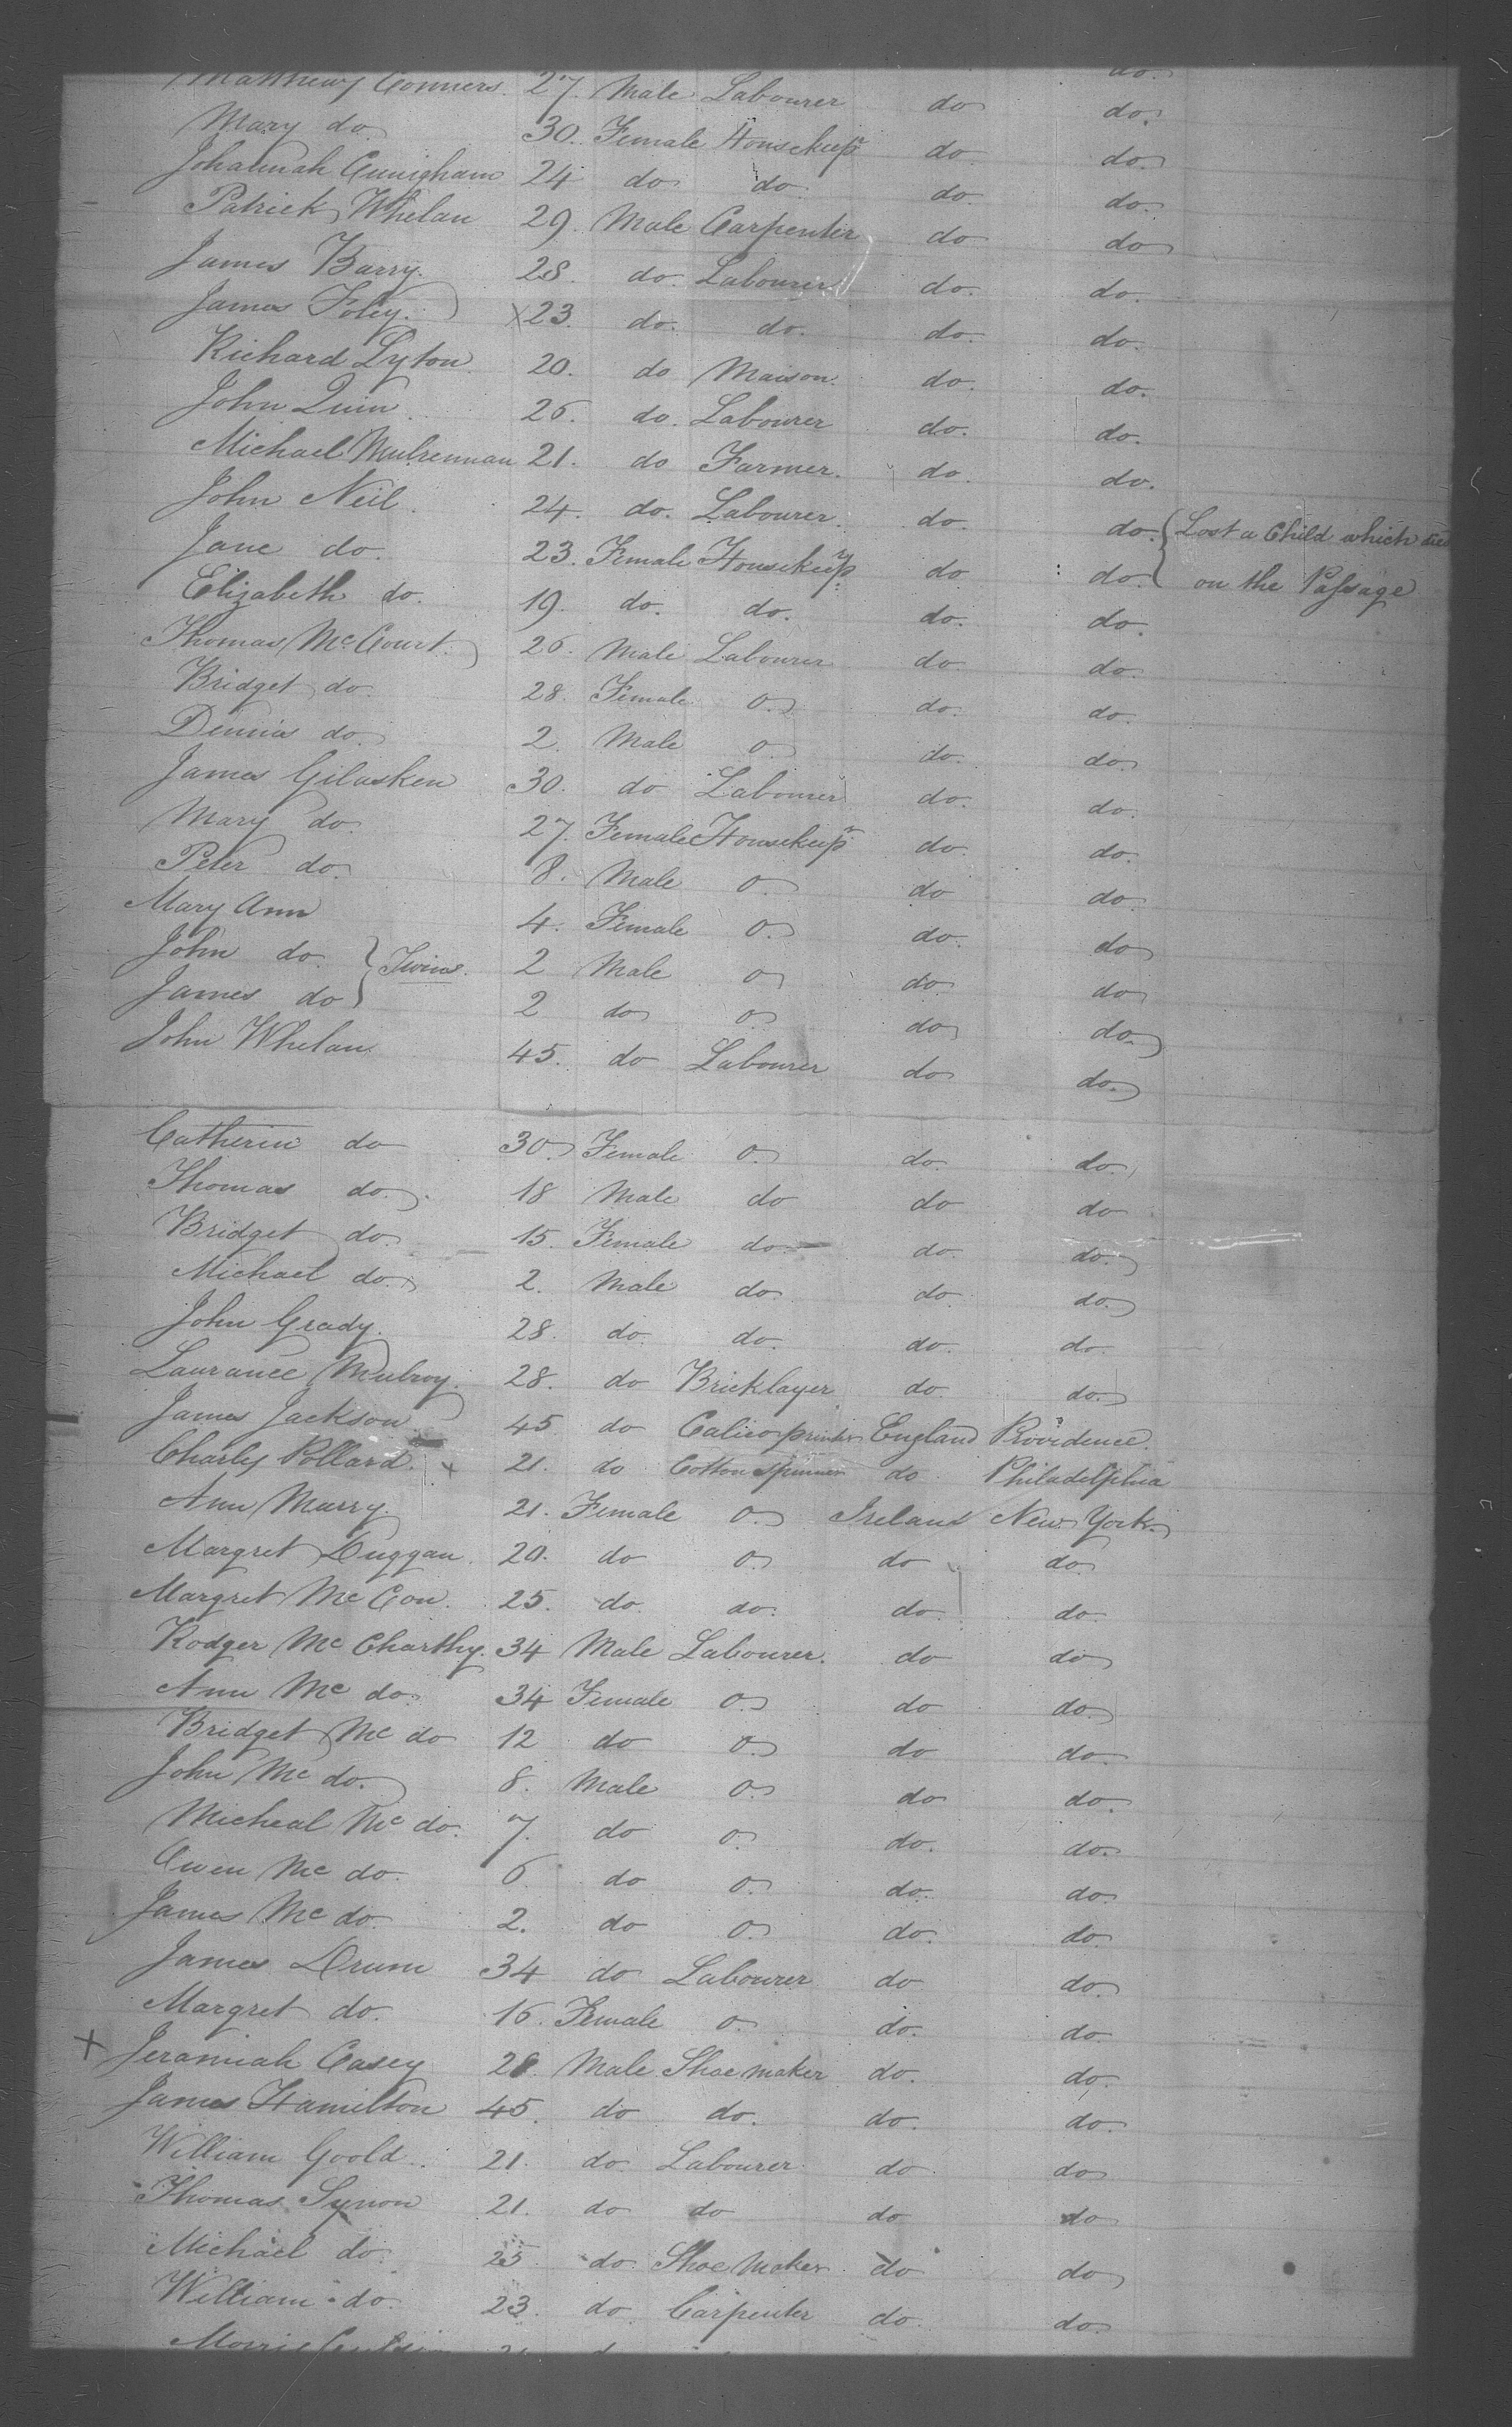 do.
Matthew Conners. 27. Male Labourer do do.
Mary do. 30. Female Housekeepr do do.
Johannah Cunigham 24 do do. do. do.
Patrick Whelan 29. Male Carpenter do do
James Barry. 28. do. Labourer do. do.
James Foley. X23. do. do. do. do.
Richard Lyton 20. do Maison. do. do.
John Quin 26. do. Labourer do. do.
Michael Mulrennan 21. do Farmer. do. do.
John Neil 24. do. Labourer. do. do. { Lost a Child which died
Jane do. 23. Female Housekeepr do do. on the Passage
Elizabeth do. 19. do. do. do. do.
Thomas McCourt. 26. Male Labourer do do.
Bridget do. 28. Female o. do. do.
Dennis do. 2. Male o do. do.
James Gilasken 30. do Labourer do. do.
Mary do. 27. Female Housekeepr do do.
Peter do. 8. Male o. do do.
Mary Ann 4. Female o. do. do
John do. } Twins. 2 Male o do do
James do 2 do o do do.
John Whelan 45. do Labourer do do.
Catherin do 30. Female o. do do.
Thomas do. 18 Male do do do
Bridget do. 15. Female do do. do.
Michael do. 2. Male do. do do.
John Grady. 28. do. do. do. do.
Laurance Mulroy. 28. do Bricklayer do. do.
James Jackson 45 do Calico printer England Providence.
Charley Pollard. x 21. do Cotton Spinner do. Philadelphia
Ann Murry. 21. Female o. Ireland New York.
Margret Duggan. 20. do o. do do.
Margret McCon. 25. do. do. do. do.
Rodger McCharthy. 34 Male Labourer. do do
Ann Mc do. 34 Female o. do do.
Bridget Mc do 12 do o. do do.
John Mc do. 8. Male o. do do.
Micheal Mc do. 7. do o. do. do.
Owen Mc do. 6 do o. do. do.
James Mc do. 2. do o. do. do.
James Drum 34 do Labourer do do.
Margret do. 16. Female o. do. do.
X Jeramiah Casey 28. Male Shoe maker do. do.
James Hamilton 45. do do. do. do.
William Goold. 21. do. Labourer. do do
Thomas Synon 21. do do do do
Michael do. 25. do. Shoe Maker do do
William do. 23. do. Carpenter do. do.